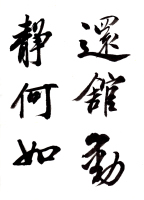 還館動
靜何如